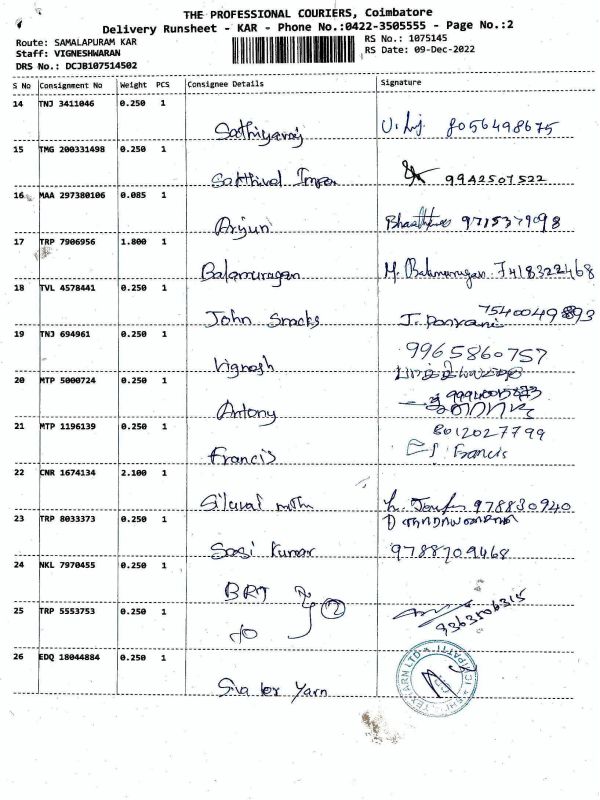 THE PROFESSIONAL COURIERS, Coimbatore
Delivery Runsheet - KAR - Phone No.:0422-3505555 - Page No.:2
Route: SAMALAPURAM KAR
RS No.: 1075145
Staff: VIGNESHWARAN
RS Date: 09-Dec-2022
DRS No.: DCJB107514502
S No Consignment No Weight PCS Consignee Details Signature
14 TNJ 3411046 0.250 1
Sathiyaraj 8056498675
15 TMG 200331498 0.250 1
Sakthivel 9942507522
16 MAA 297380106 0.085 1
Arjun 9715379098
17 TRP 7906956 1.800 1
Balamurugan M. Balamurugan 7418322468
18 TVL 4578441 0.250 1
7540049893
John Snacks J.
19 TNJ 694961 0.250 1
9965860757
Vignesh
20 MTP 5000724 0.250 1
Antony
21 MTP 1196139 0.250 1
8012027799
Francis Francis
22 CNR 1674134 2.100 1
978830940
23 TRP 8033373 0.250 1
Sasi Kumar 9788709468
24 NKL 7970455 0.250 1
BRT 2
25 TRP 5553753 0.250 1
do 9363106315
26 EDQ 18044884 0.250 1
Siva tex Yarn